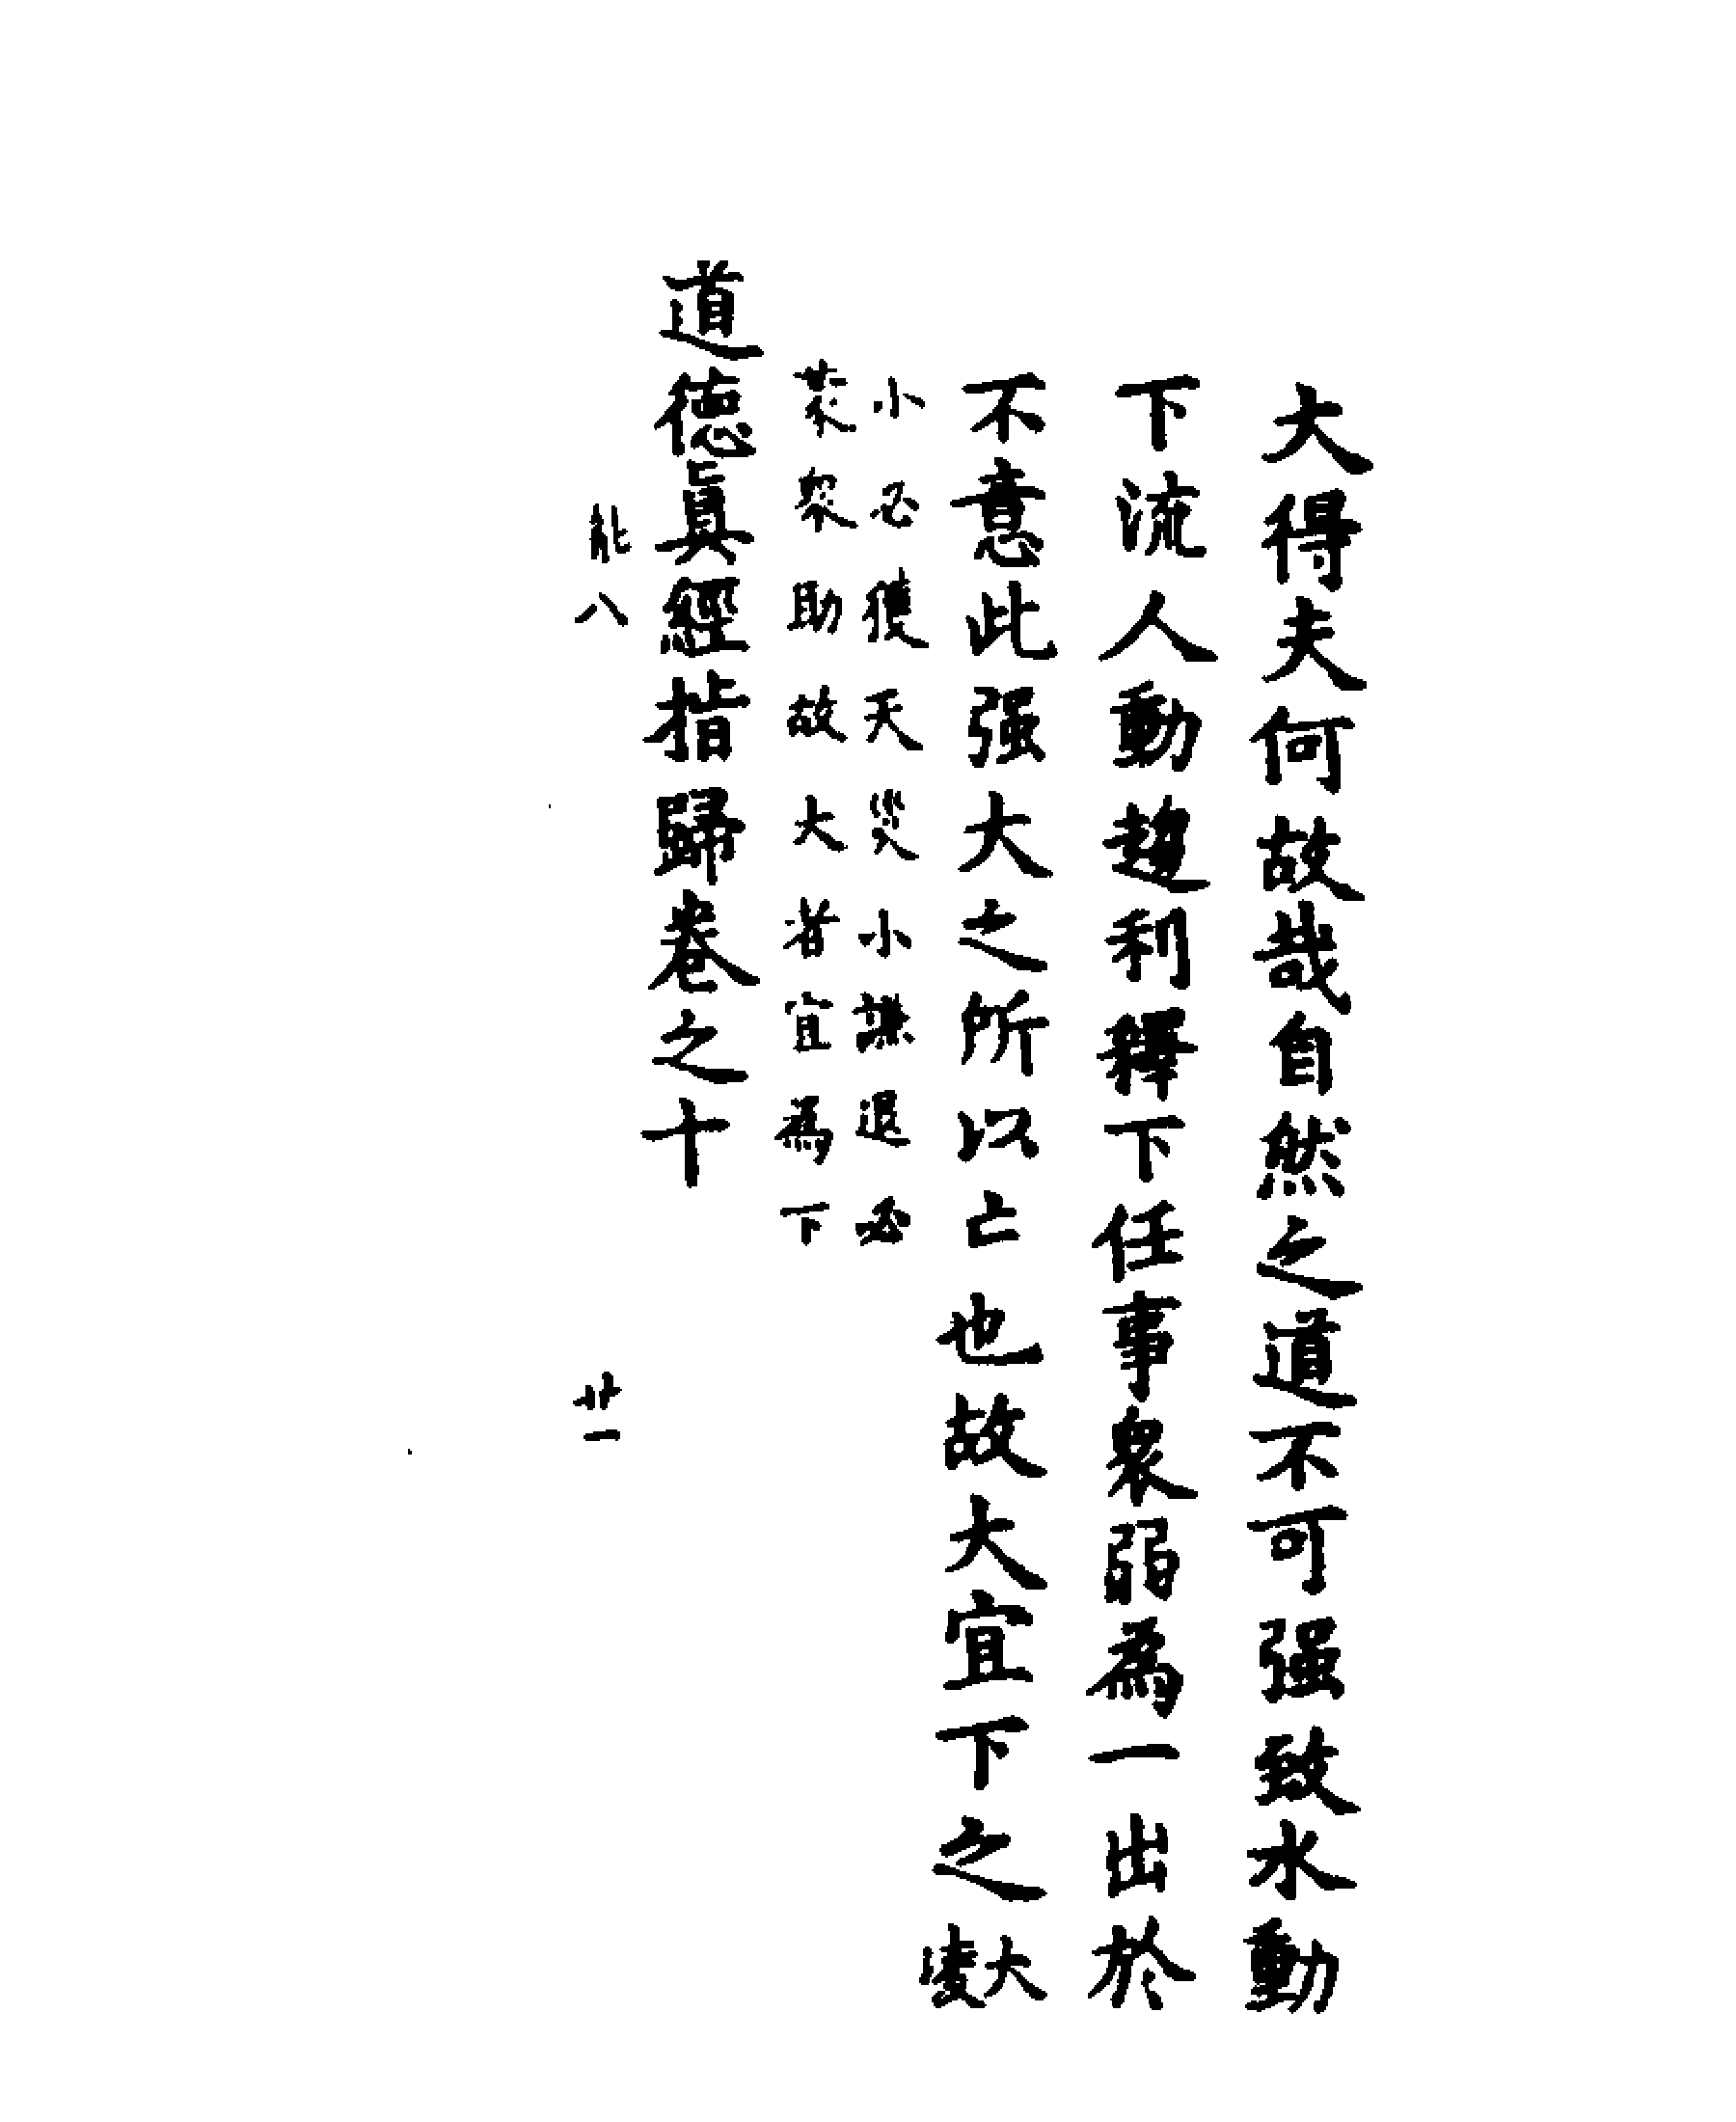 大得夫何故哉自然之道不可强致水動
下流人動趨利釋下任事衆弱為一出於
不意此强大之所以亡也故大宜下之大凌
小必獲天災小謙退必
蒙衆助故大者宜為下
道德眞經指歸卷之十
能八 廿一